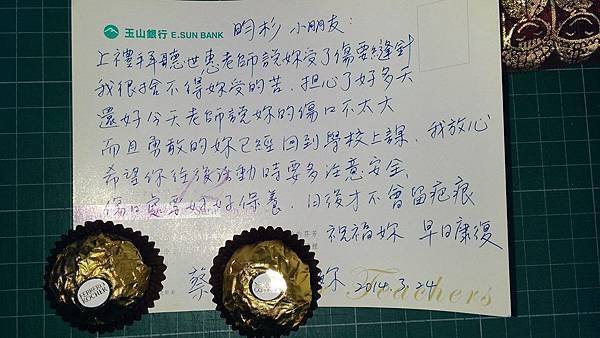 玉山銀行 E.SUN BANK
昀杉 小朋友：
上禮拜聽世惠老師說妳受了傷要縫針
我很捨不得妳受的苦．担心了好多天
還好今天老師說妳的傷口不太大
而且勇敢的妳已經回到學校上課．我放心
希望你往後活動時要多注意安全．
傷口處要好好保養．日後才不會留疤痕
祝福妳 早日康復
蔡
2014.3.24
Teachers
FERRERO
ROCHER